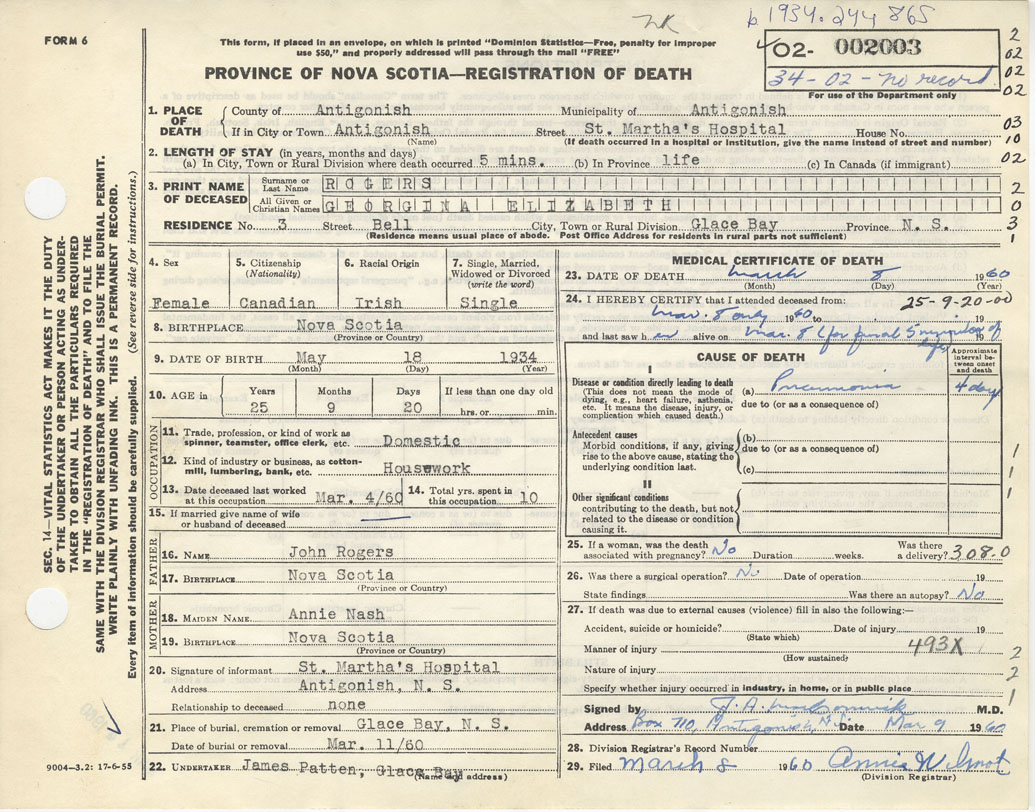 b 1934. 244 865
FORM 6
This form, if placed in an envelope, on which is printed "Dominion Statistics—Free, penalty for improper
use $50," and properly addressed will pass through the mail "FREE"
PROVINCE OF NOVA SCOTIA—REGISTRATION OF DEATH
02- 002003
34-02-no record
For use of the Department only
2
02
02
02
03
10
02
2
0
3
1
1. PLACE OF DEATH
County of Antigonish Municipality of Antigonish
If in City or Town Antigonish Street St. Martha's Hospital House No.
(Name) (If death occurred in a hospital or institution, give the name instead of street and number)
2. LENGTH OF STAY (in years, months and days)
(a) In City, Town or Rural Division where death occurred 5 mins. (b) In Province life (c) In Canada (if immigrant)
3. PRINT NAME OF DECEASED
Surname or Last Name ROGERS
All Given or Christian Names GEORGINA ELIZABETH
RESIDENCE No. 3 Street Bell City, Town or Rural Division Glace Bay Province N. S.
(Residence means usual place of abode. Post Office Address for residents in rural parts not sufficient)
4. Sex
Female
5. Citizenship (Nationality)
Canadian
6. Racial Origin
Irish
7. Single, Married, Widowed or Divorced (write the word)
Single
8. BIRTHPLACE Nova Scotia
(Province or Country)
9. DATE OF BIRTH May 18 1934
(Month) (Day) (Year)
10. AGE in
Years Months Days If less than one day old
25 9 20 hrs. or min.
OCCUPATION
11. Trade, profession, or kind of work as spinner, teamster, office clerk, etc. Domestic
12. Kind of industry or business, as cotton-mill, lumbering, bank, etc. Housework
13. Date deceased last worked at this occupation Mar. 4/60
14. Total yrs. spent in this occupation 10
15. If married give name of wife or husband of deceased
FATHER
16. NAME John Rogers
17. BIRTHPLACE Nova Scotia
(Province or Country)
MOTHER
18. MAIDEN NAME Annie Nash
19. BIRTHPLACE Nova Scotia
(Province or Country)
20. Signature of informant St. Martha's Hospital
Address Antigonish, N. S.
Relationship to deceased none
21. Place of burial, cremation or removal Glace Bay, N. S.
Date of burial or removal Mar. 11/60
22. UNDERTAKER James Patten, Glace Bay
(Name and address)
MEDICAL CERTIFICATE OF DEATH
23. DATE OF DEATH March 8 1960
(Month) (Day) (Year)
24. I HEREBY CERTIFY that I attended deceased from: 25-9-20-00
Mar. 8 only 1960 to 19
and last saw h er alive on Mar. 8 (for final 5 minutes of 19
CAUSE OF DEATH
Approximate interval between onset and death
I
Disease or condition directly leading to death
(This does not mean the mode of dying, e.g., heart failure, asthenia, etc. It means the disease, injury, or complication which caused death.)
(a) Pneumonia 4 days
due to (or as a consequence of)
Antecedent causes
Morbid conditions, if any, giving rise to the above cause, stating the underlying condition last.
(b)
due to (or as a consequence of)
(c)
II
Other significant conditions
contributing to the death, but not related to the disease or condition causing it.
1
1
1
25. If a woman, was the death associated with pregnancy? No Duration weeks. Was there a delivery? 308-0
26. Was there a surgical operation? No Date of operation 19
State findings Was there an autopsy? No
27. If death was due to external causes (violence) fill in also the following:—
Accident, suicide or homicide? Date of injury 19
(State which)
493X
Manner of injury
(How sustained)
Nature of injury
Specify whether injury occurred in industry, in home, or in public place
2
2
1
Signed by M.D.
Address Box 710, Antigonish, N.S. Date Mar 9 1960
28. Division Registrar's Record Number
29. Filed March 8 1960 Annie Wilmot
(Division Registrar)
SEC. 14—VITAL STATISTICS ACT MAKES IT THE DUTY
OF THE UNDERTAKER OR PERSON ACTING AS UNDER-
TAKER TO OBTAIN ALL THE PARTICULARS REQUIRED
IN THE "REGISTRATION OF DEATH" AND TO FILE THE
SAME WITH THE DIVISION REGISTRAR WHO SHALL ISSUE THE BURIAL PERMIT.
WRITE PLAINLY WITH UNFADING INK. THIS IS A PERMANENT RECORD.
Every item of information should be carefully supplied. (See reverse side for instructions.)
9004-3.2: 17-6-55